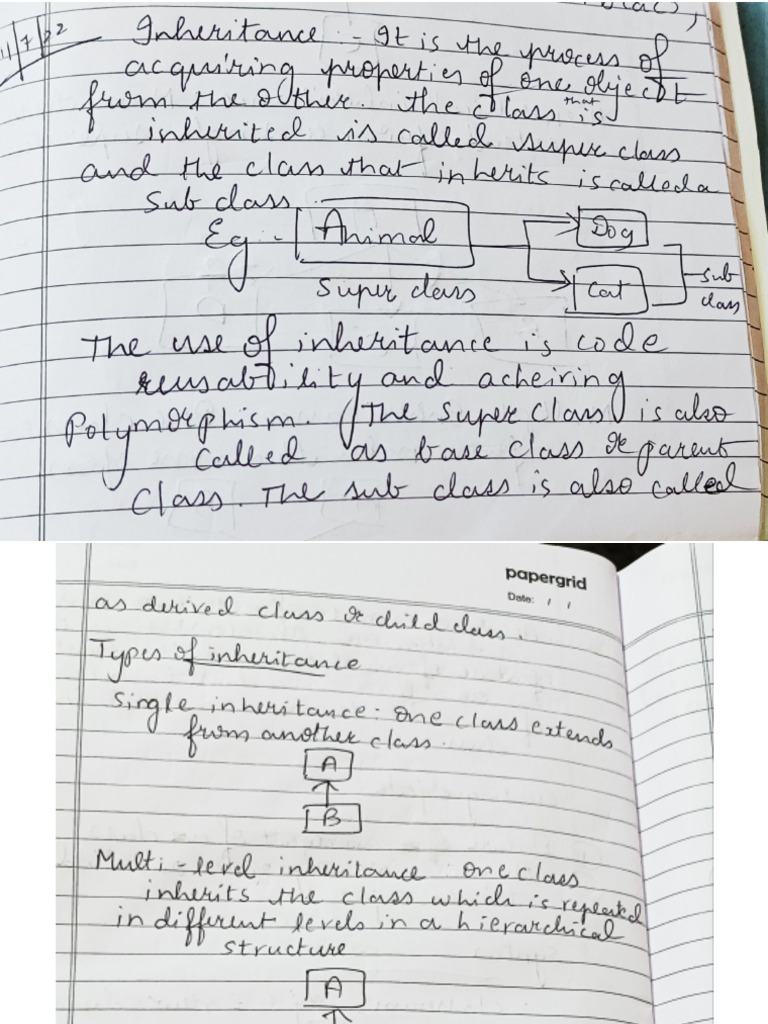 11/7/22
Inheritance :- It is the process of
acquiring properties of one object
from the other. The class that is
inherited is called super class
and the class that inherits is called a
Sub class.
Eg :- Animal
Dog
Cat
Super class
sub
class
The use of inheritance is code
reusability and acheiring
Polymorphism. (The super class is also
called as base class or parent
class. The sub class is also called
papergrid
Date: / /
as derived class or child class.
Types of inheritance
Single inheritance: One class extends
from another class.
A
B
Multi-level inheritance one class
inherits the class which is repeated
in different levels in a hierarchical
structure
A